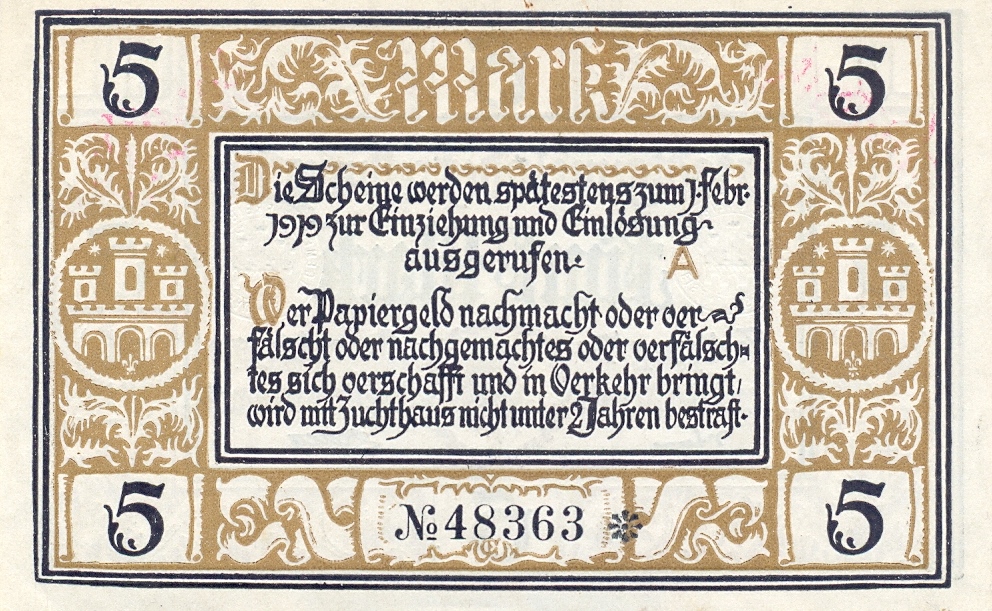 5 Mark 5
Die Scheine werden spätestens zum 1. Febr.
1919 zur Einziehung und Einlösung
ausgerufen.
A
Wer Papiergeld nachmacht oder ver=
fälscht oder nachgemachtes oder verfälsch=
tes sich verschafft und in Verkehr bringt,
wird mit Zuchthaus nicht unter 2 Jahren bestraft.
5 № 48363 5